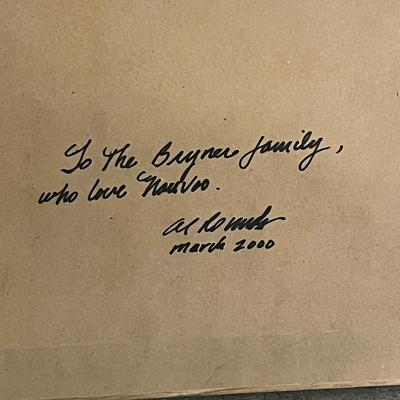 To The Bryner family,
who love Nauvoo.
Al Rounds
March 2000